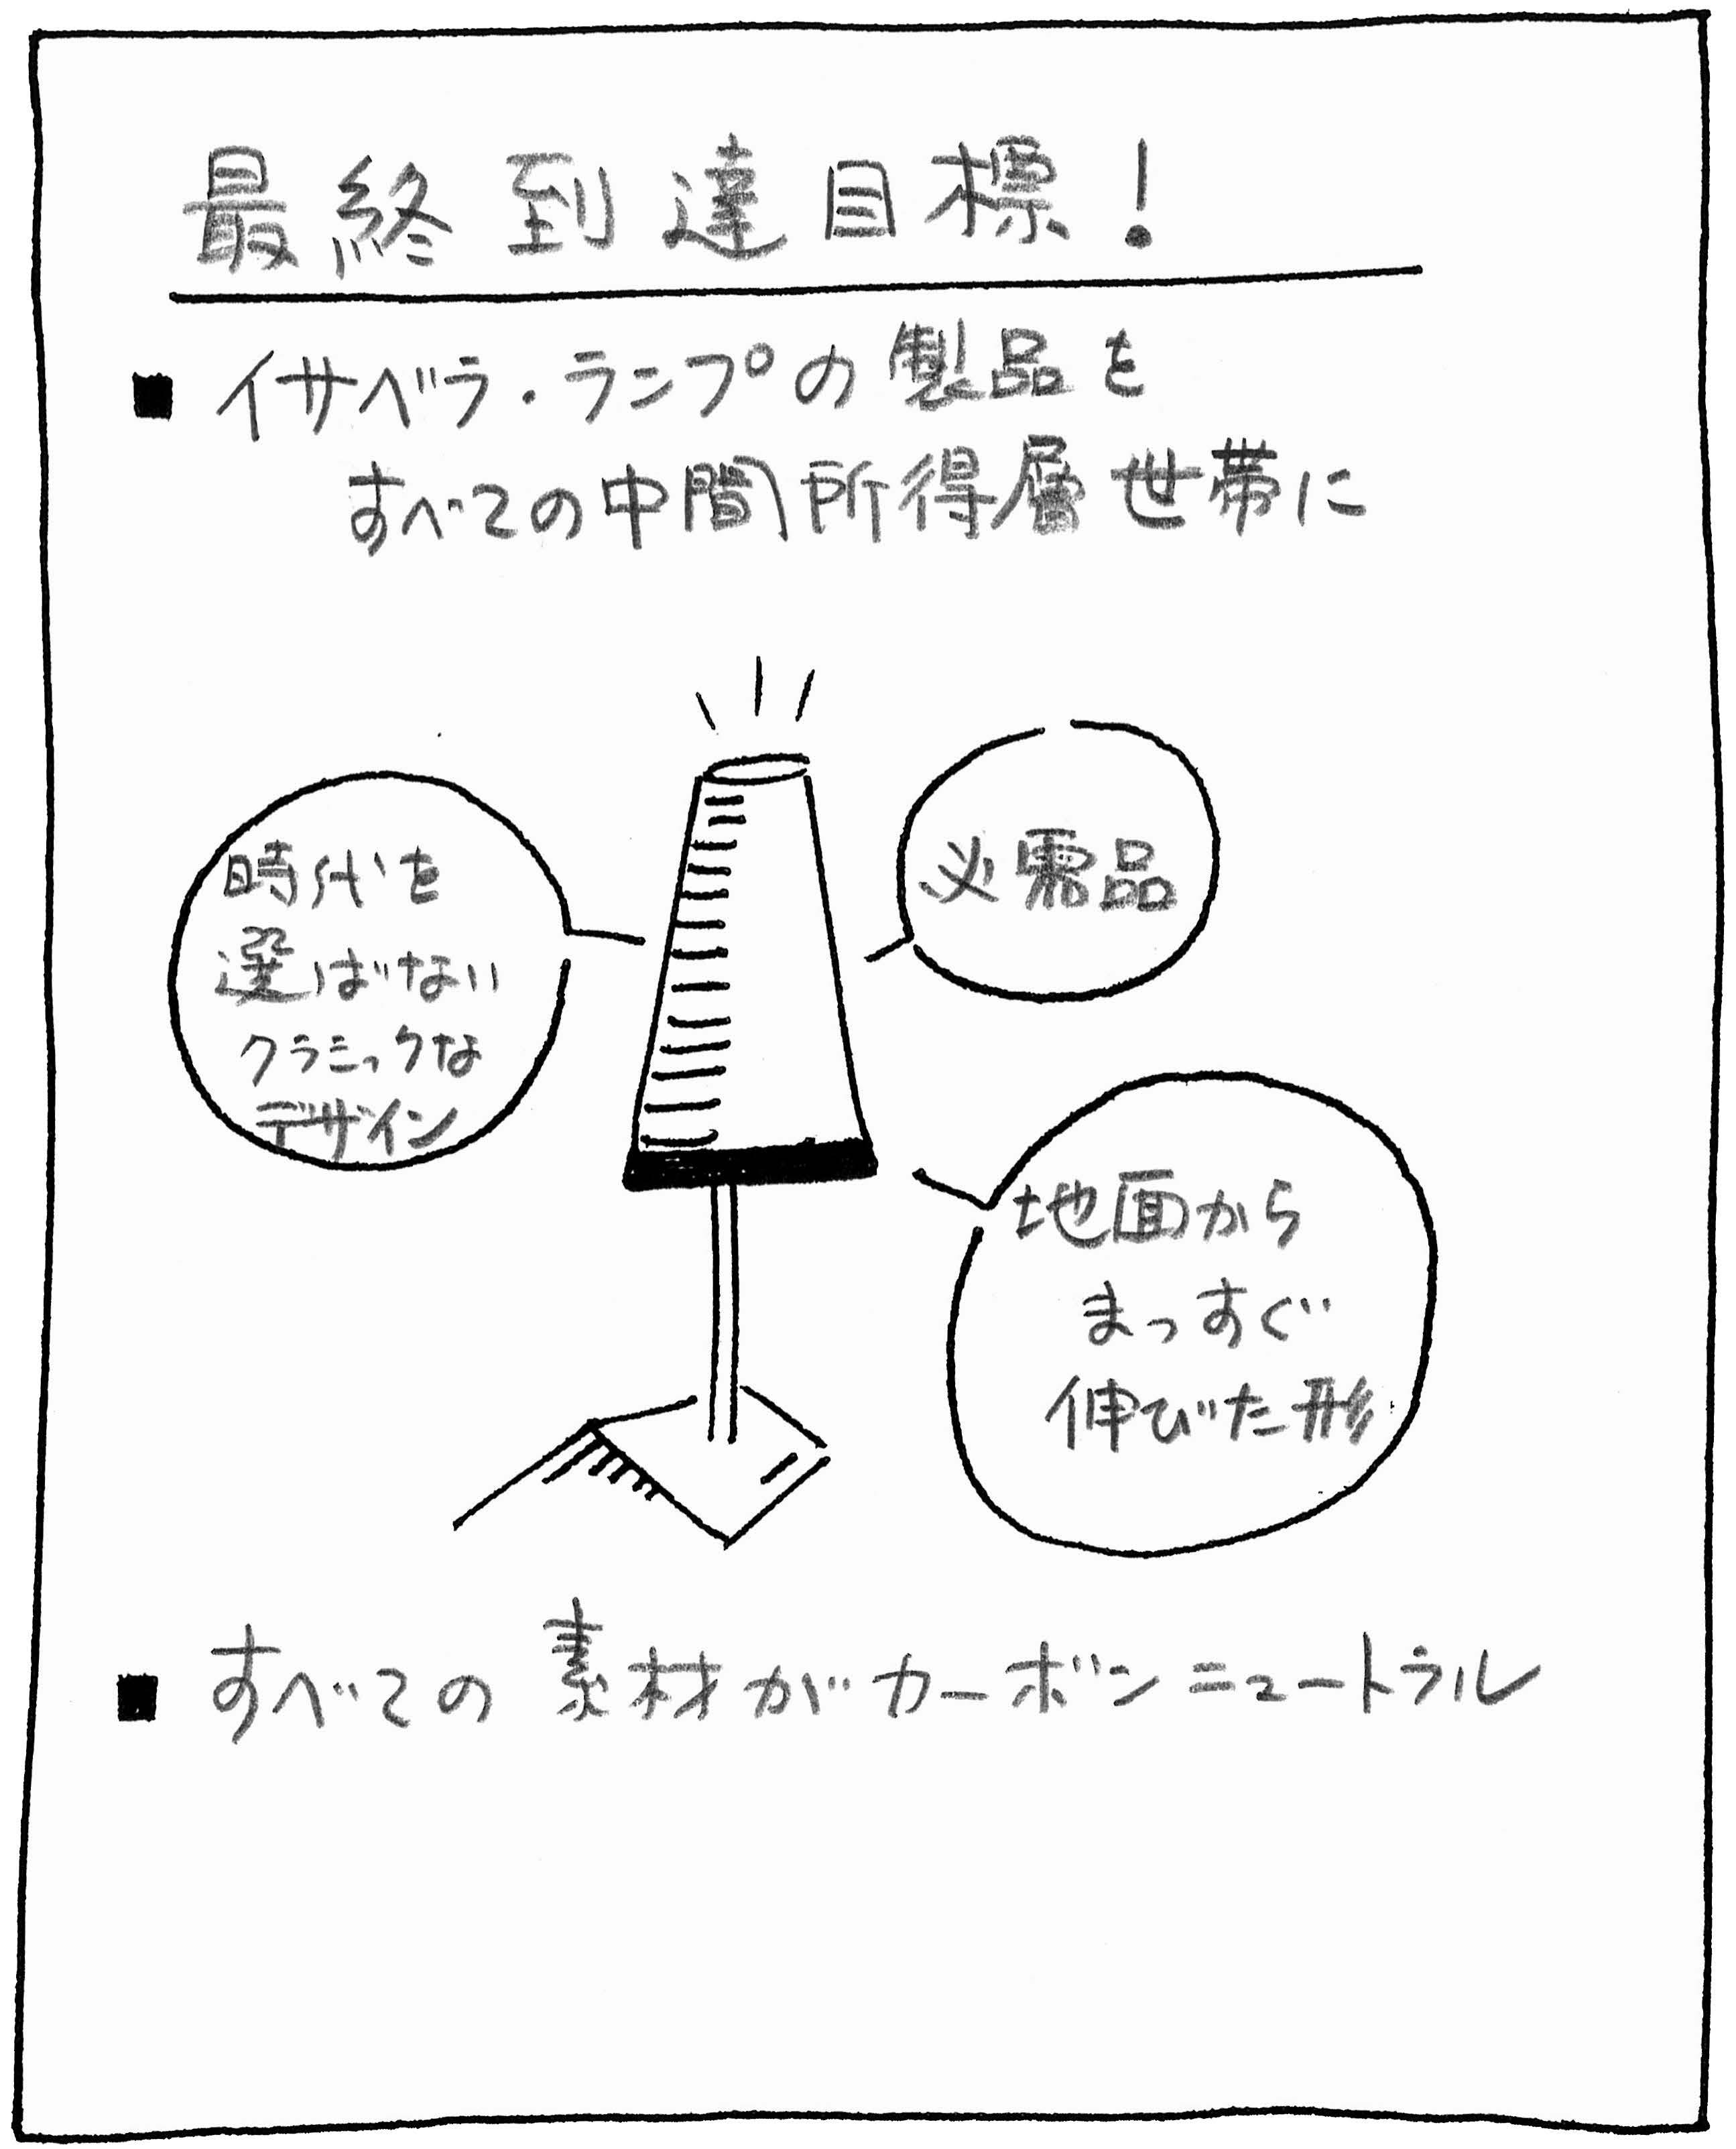 最終到達目標！
■ イサベラ・ランプの製品を
すべての中間所得層世帯に
時代を
選ばない
クラミックな
デザイン
必需品
地面から
まっすぐ
伸びた形
■ すべての素材がカーボンニュートラル